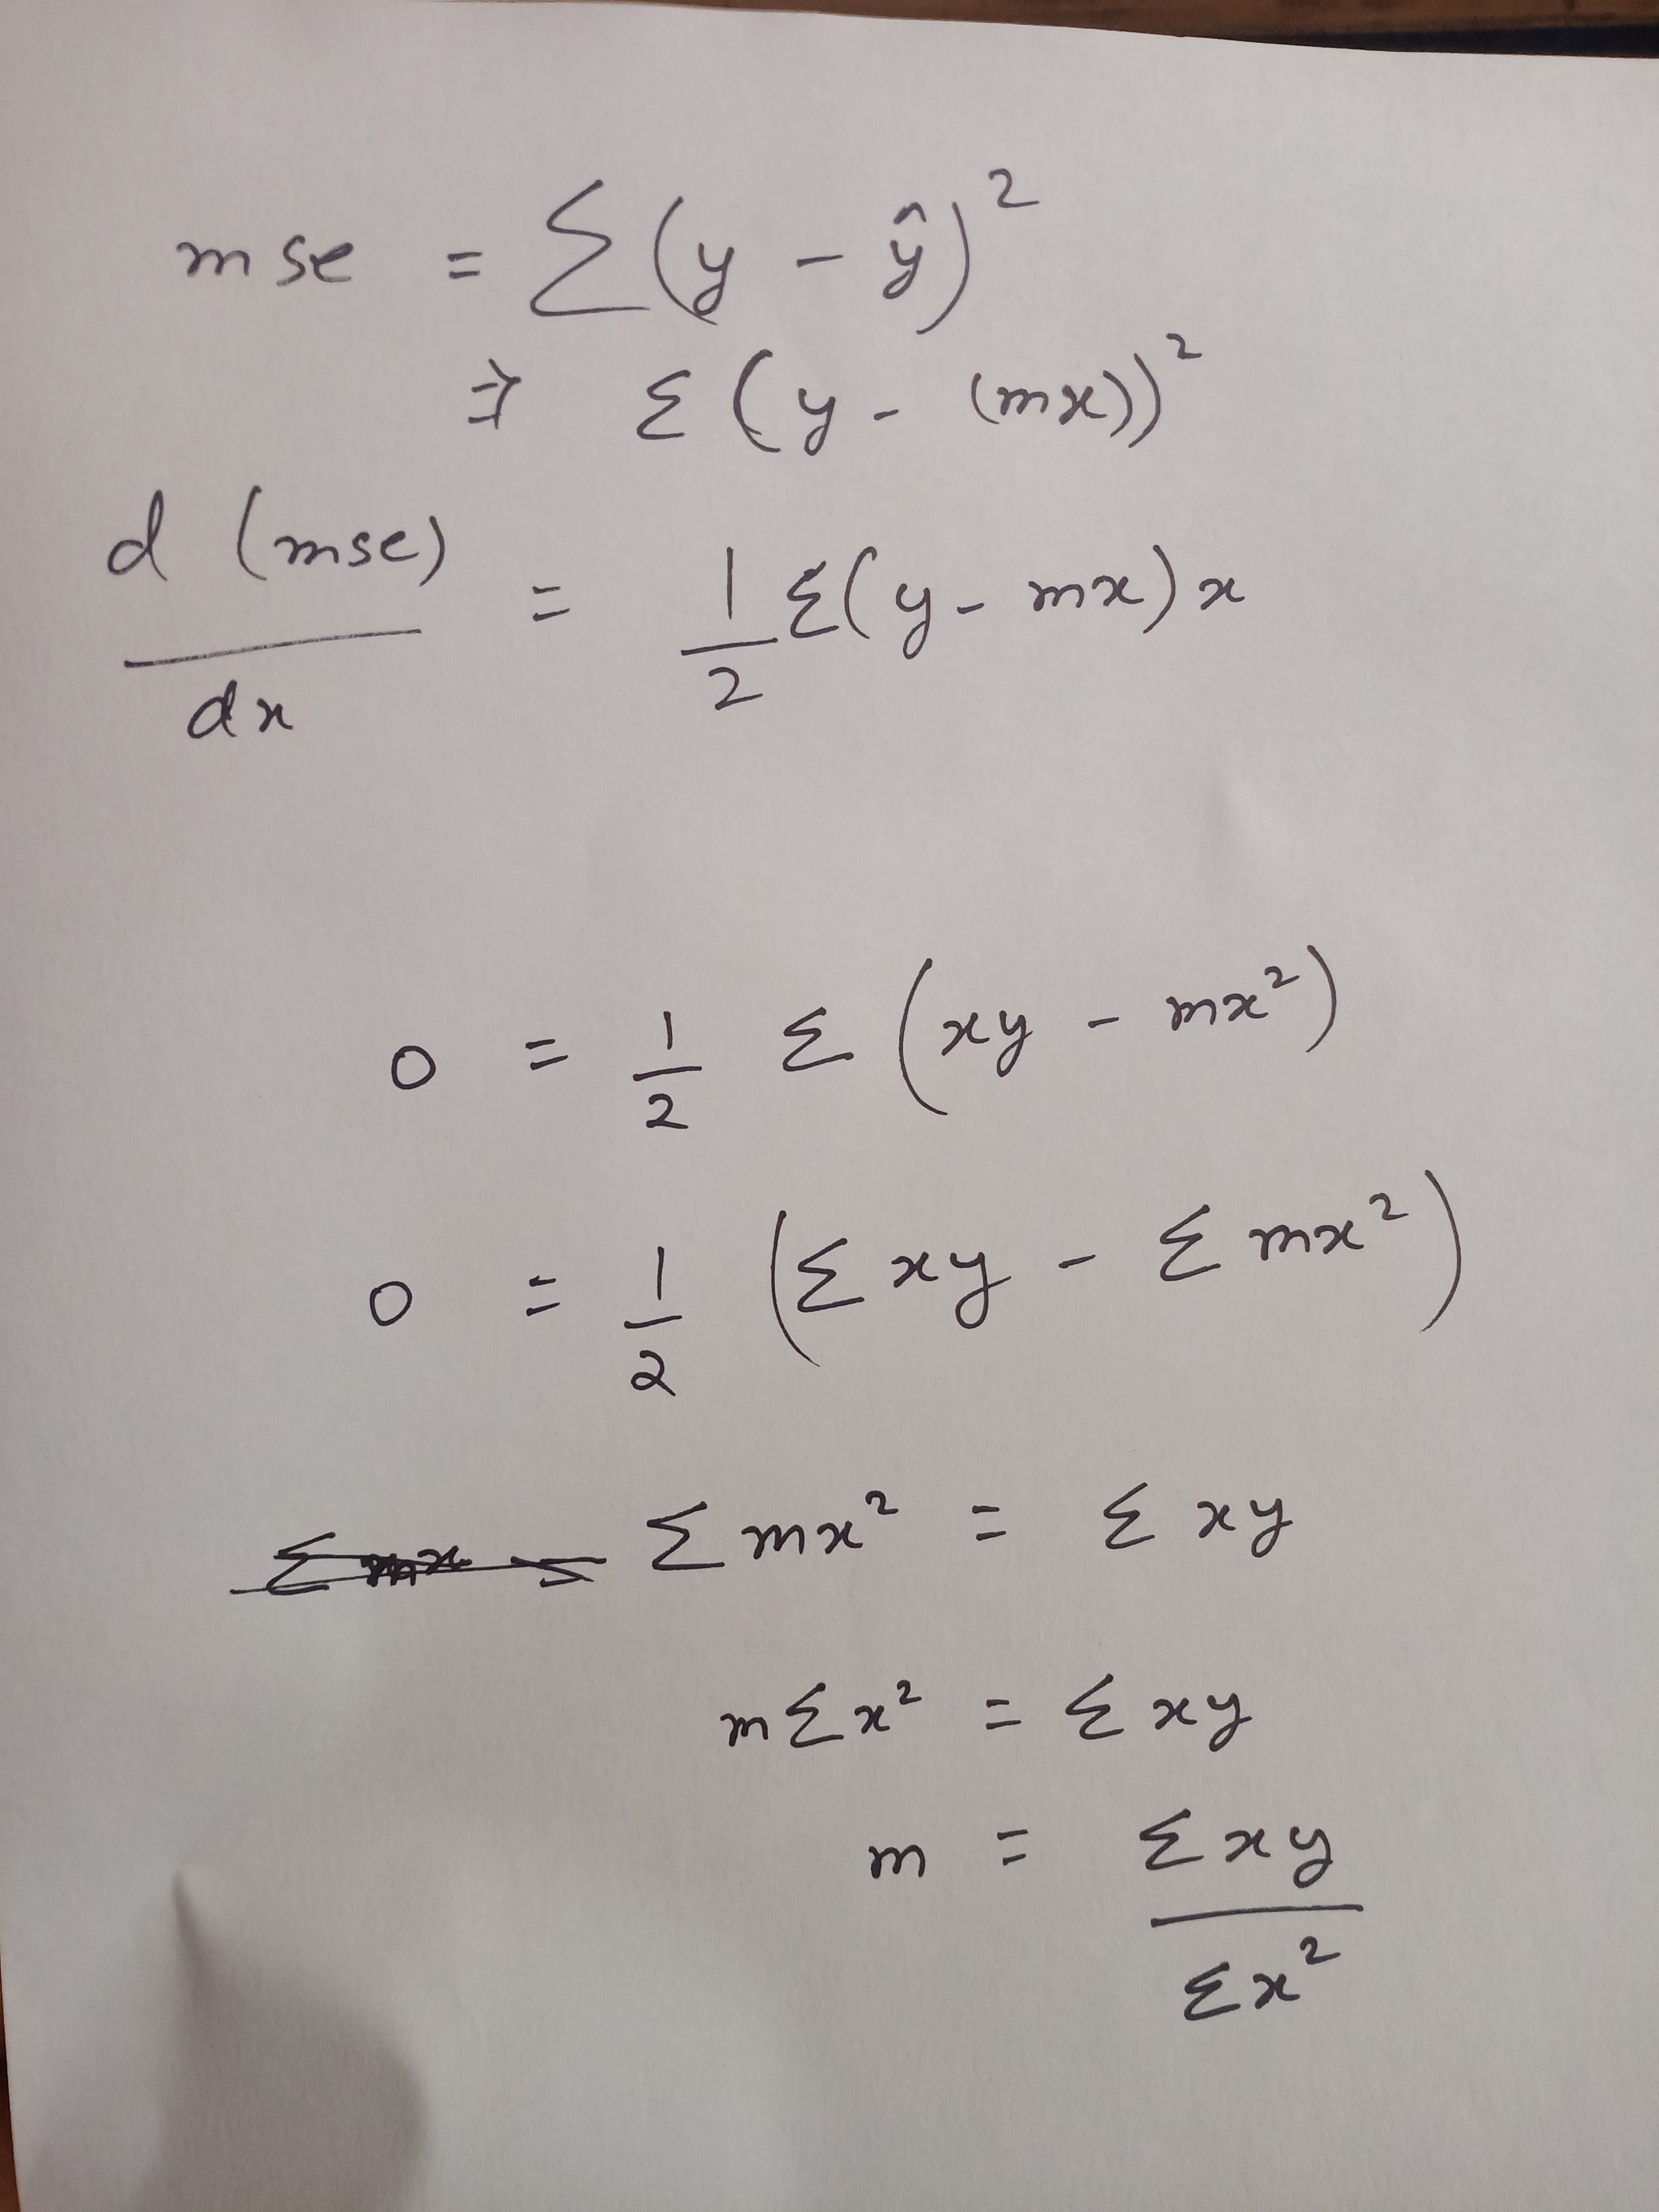 mse = Σ(y - ŷ)²
⇒ Σ(y - (mx))²
d (mse)/dx = 1/2 Σ(y - mx)x
0 = 1/2 Σ(xy - mx²)
0 = 1/2 (Σxy - Σmx²)
Σmx² = Σxy
mΣx² = Σxy
m = Σxy/Σx²